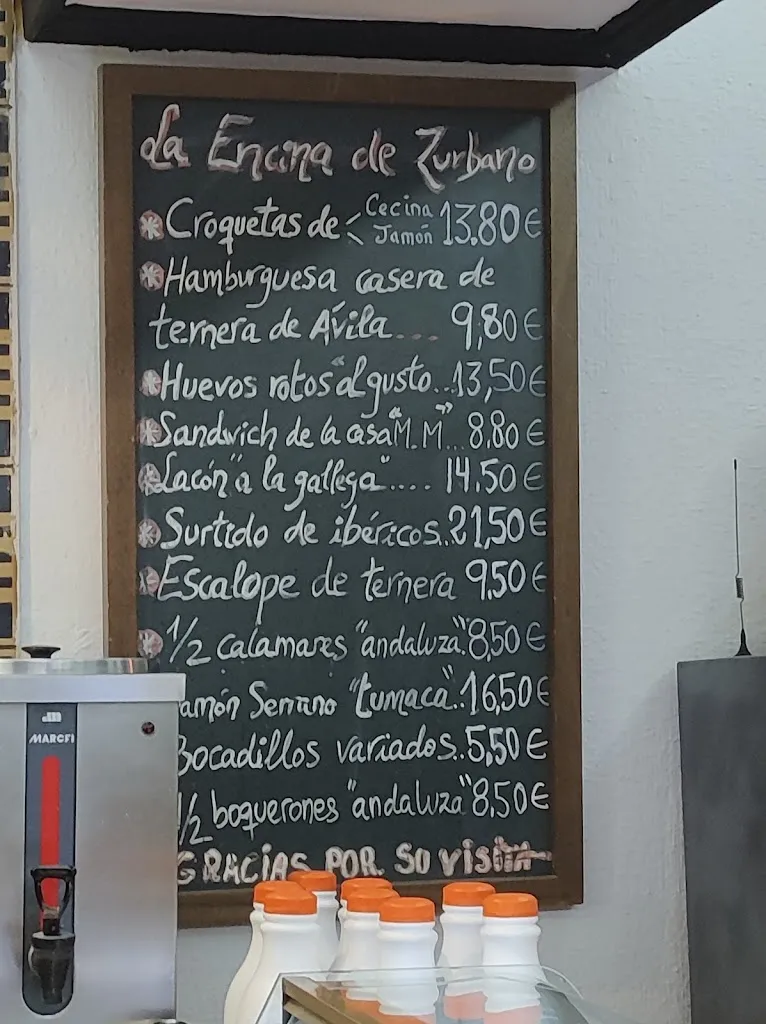 La Encina de Zurbano
Croquetas de < Cecina Jamón 13,80€
Hamburguesa casera de
ternera de Ávila.... 9,80€
Huevos rotos "al gusto...13,50€
Sandwich de la casa "M.M"... 8,80€
Lacón "a la gallega".... 14,50€
Surtido de ibéricos..21,50€
Escalope de ternera 9,50€
1/2 calamares "andaluza" 8,50€
amón Serrano "tumaca"..16,50€
Bocadillos variados..5,50€
1/2 boquerones "andaluza" 8,50€
GRACIAS POR SU VISITA
MARCFI